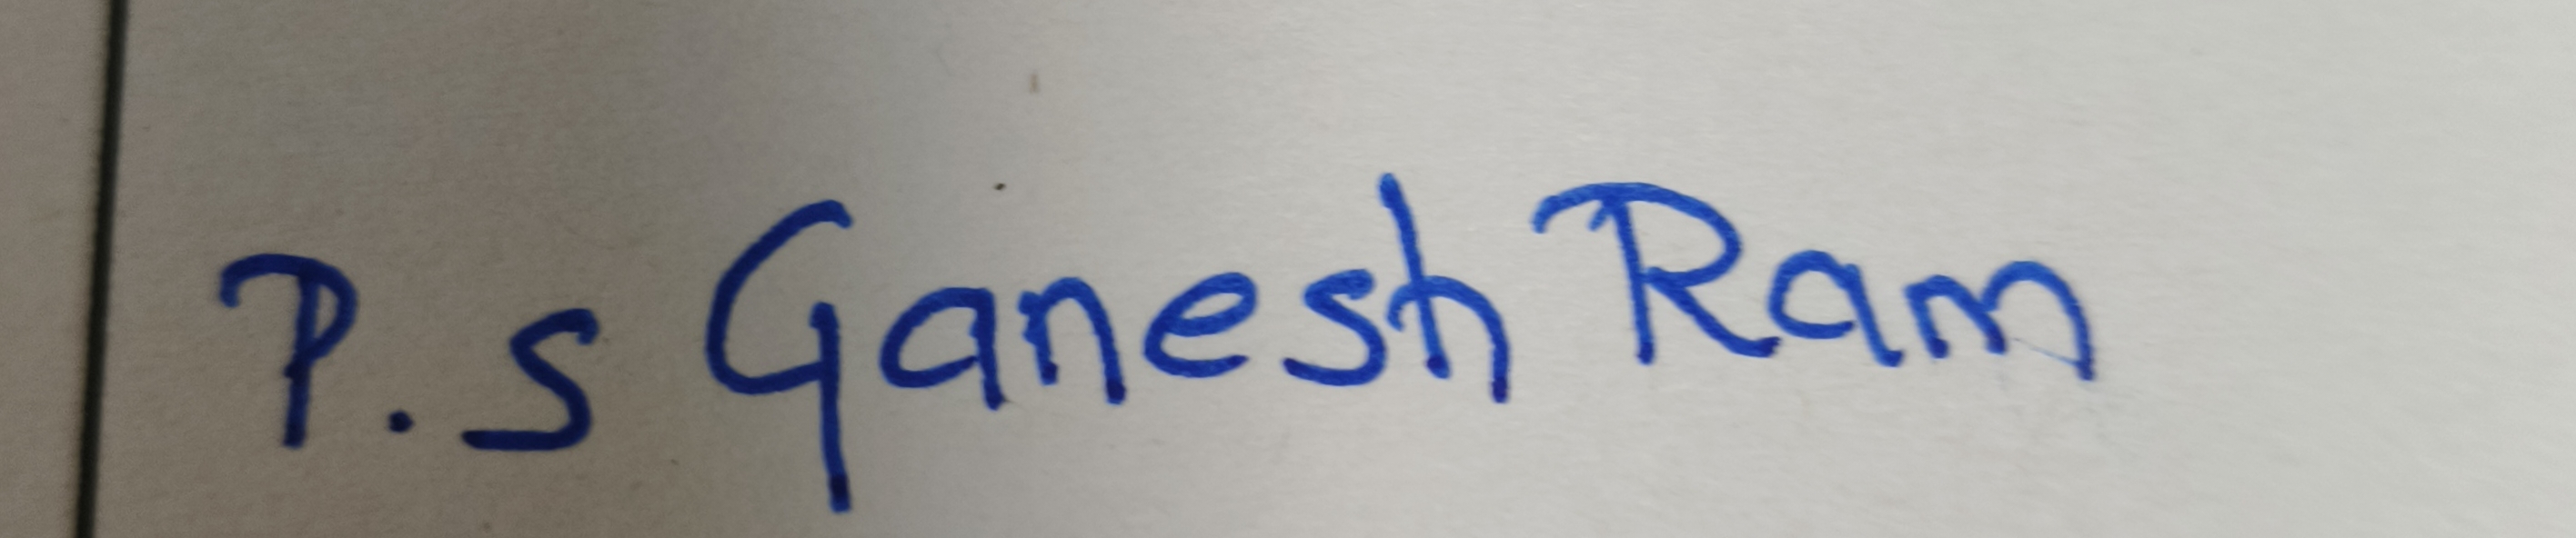 P.S Ganesh Ram